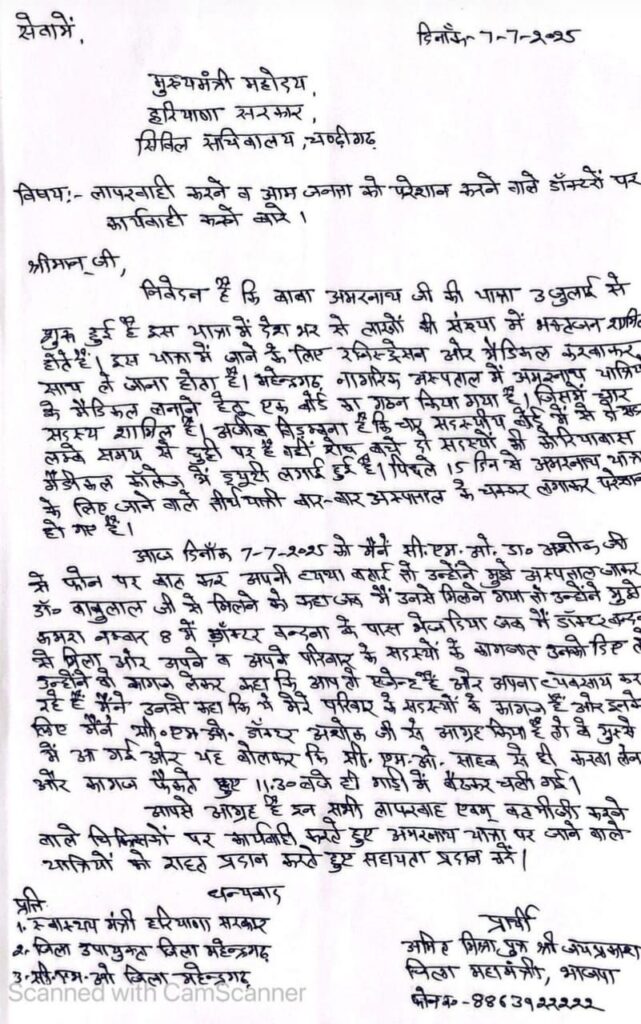 सेवामें,
दिनाँक- 7-7-2025
मुख्यमंत्री महोदय,
हरियाणा सरकार,
सिविल सचिवालय, चण्डीगढ़
विषय:- लापरवाही करने व आम जनता को परेशान करने वाले डॉक्टरों पर
कार्यवाही करने बारे।
श्रीमान् जी,
निवेदन है कि बाबा अमरनाथ जी की यात्रा 3 जुलाई से
शुरू हुई है इस यात्रा में देश भर से लाखों की संख्या में भक्तजन शामिल
होते हैं। इस यात्रा में जाने के लिए रजिस्ट्रेसन और मैडिकल करवाकर,
साथ ले जाना होता है। महेन्द्रगढ़ नागरिक अस्पताल में अमरनाथ यात्रियों
के मैडिकल बनाने हेतू एक बोर्ड का गठन किया गया है। जिसमें चार
सदस्य शामिल हैं। अजीब विडम्बना है कि चार सदस्यीय बोर्ड में से दो
लम्बे समय से छुट्टी पर है वहीं शेष बचे दो सदस्यों की कोरियावास
मैडीकल कॉलेज में ड्यूटी लगाई हुई है। पिछले 15 दिन से अमरनाथ यात्रा
के लिए जाने वाले तीर्थ यात्री बार-बार अस्पताल के चक्कर लगाकर परेशान
हो गए हैं।
आज दिनाँक 7-7-2025 को मैंने सी.एम.ओ. डा० अशोक जी
से फोन पर बात कर अपनी व्यथा बताई तो उन्होंने मुझे अस्पताल जाकर
डॉ० बाबुलाल जी से मिलने को कहा जब मैं उनसे मिलने गया तो उन्होंने मुझे
कमरा नम्बर 8 में डॉक्टर वन्दना के पास भेज दिया जब मैं डॉक्टर वन्दना
से मिला और अपने व अपने परिवार के सदस्यों के कागजात उनको दिए तो
उन्होंने वो कागज लेकर कहा कि आप तो एजेन्ट है और अपना व्यवसाय कर
रहे हैं मैंने उनसे कहा कि ये मेरे परिवार के सदस्यों के कागज हैं और इनके
लिए मैंने सी.एम.ओ. डॉक्टर अशोक जी से आग्रह किया है तो वे गुस्से
में आ गई और यह बोलकर कि सी.एम.ओ. साहब से ही करवा लेना
और कागज फैंकते हुए 11.30 बजे ही गाड़ी में बैठकर चली गई।
आपसे आग्रह है इन सभी लापरवाह एवम् बतमीजी करने
वाले चिकित्सकों पर कार्यवाही करते हुए अमरनाथ यात्रा पर जाने वाले
यात्रियों को राहत प्रदान करते हुए सहायता प्रदान करें।
धन्यवाद
प्रति
1. स्वास्थय मंत्री हरियाणा सरकार
2. जिला उपायुक्त जिला महेन्द्रगढ़
3. सी.एम.ओ जिला महेन्द्रगढ़
प्रार्थी
अमित मिश्रा पुत्र श्री जयप्रकाश
जिला महामंत्री, भाजपा
फोन न०- 8863922222
Scanned with CamScanner